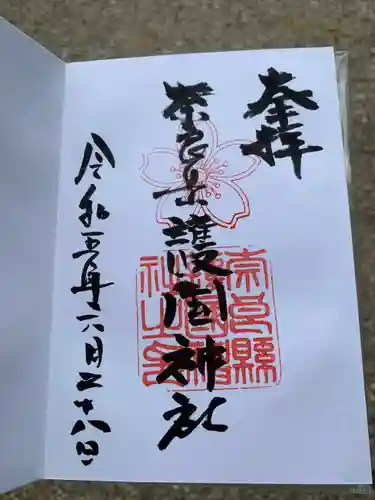 奉拝
奈良県護国神社
奈良縣護國神社之印
令和五年六月二十八日